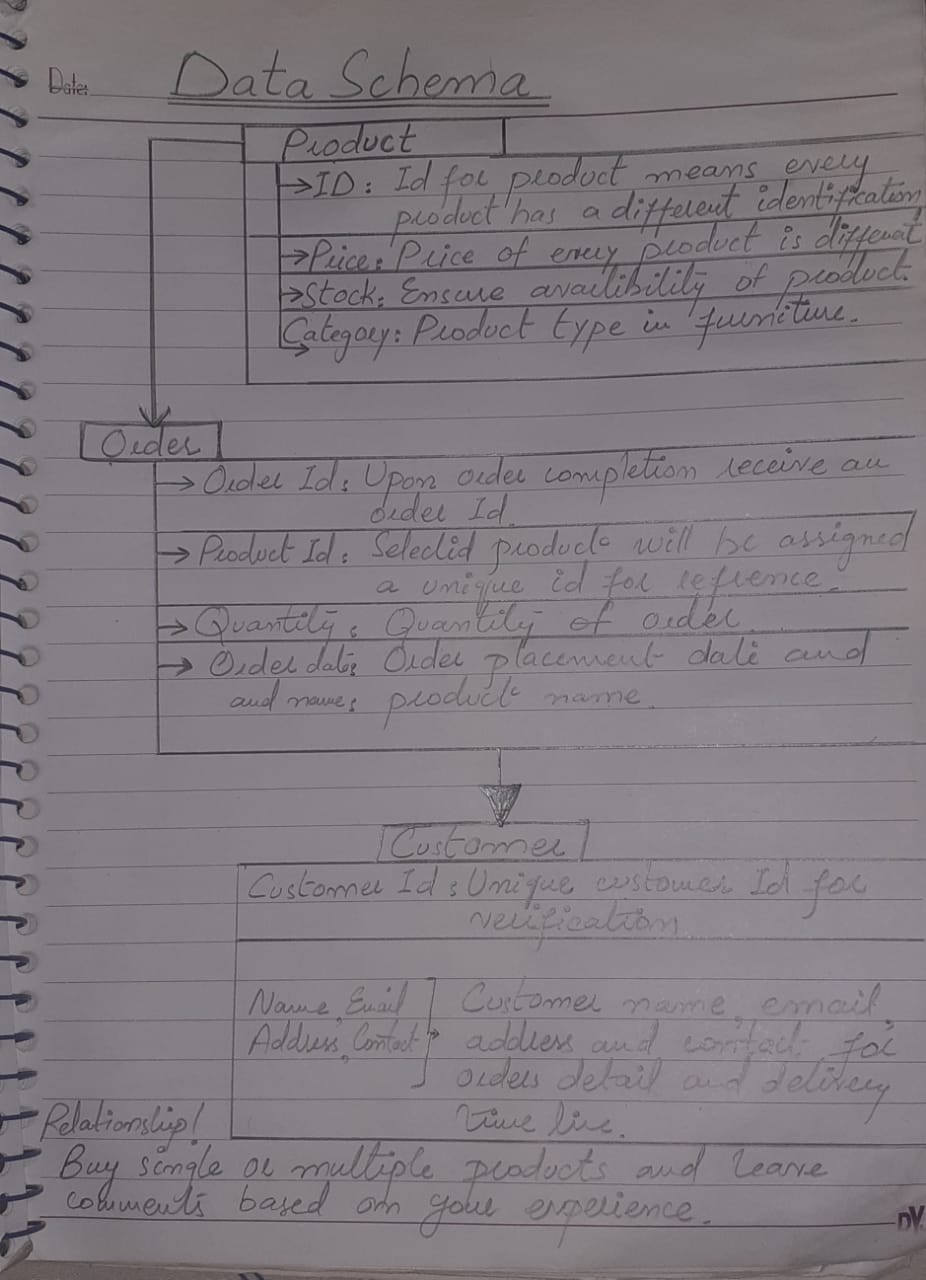 Date:
Data Schema
Product
ID: Id for product means every
product has a different identification
Price: Price of every product is different
Stock: Ensure availibility of product.
Category: Product type in furniture.
Order
Order Id: Upon order completion receive an
order Id.
Product Id: Selectid product will be assigned
a unique id for refrence.
Quantity: Quantity of order
Order date: Order placement date and
and name: product name.
Customer
Customer Id: Unique customer Id for
verification
Name, Email
Address, Contact
Customer name, email,
address and contact for
orders detail and delivery
time line.
Relationship!
Buy single or multiple products and leave
comments based om your experience.